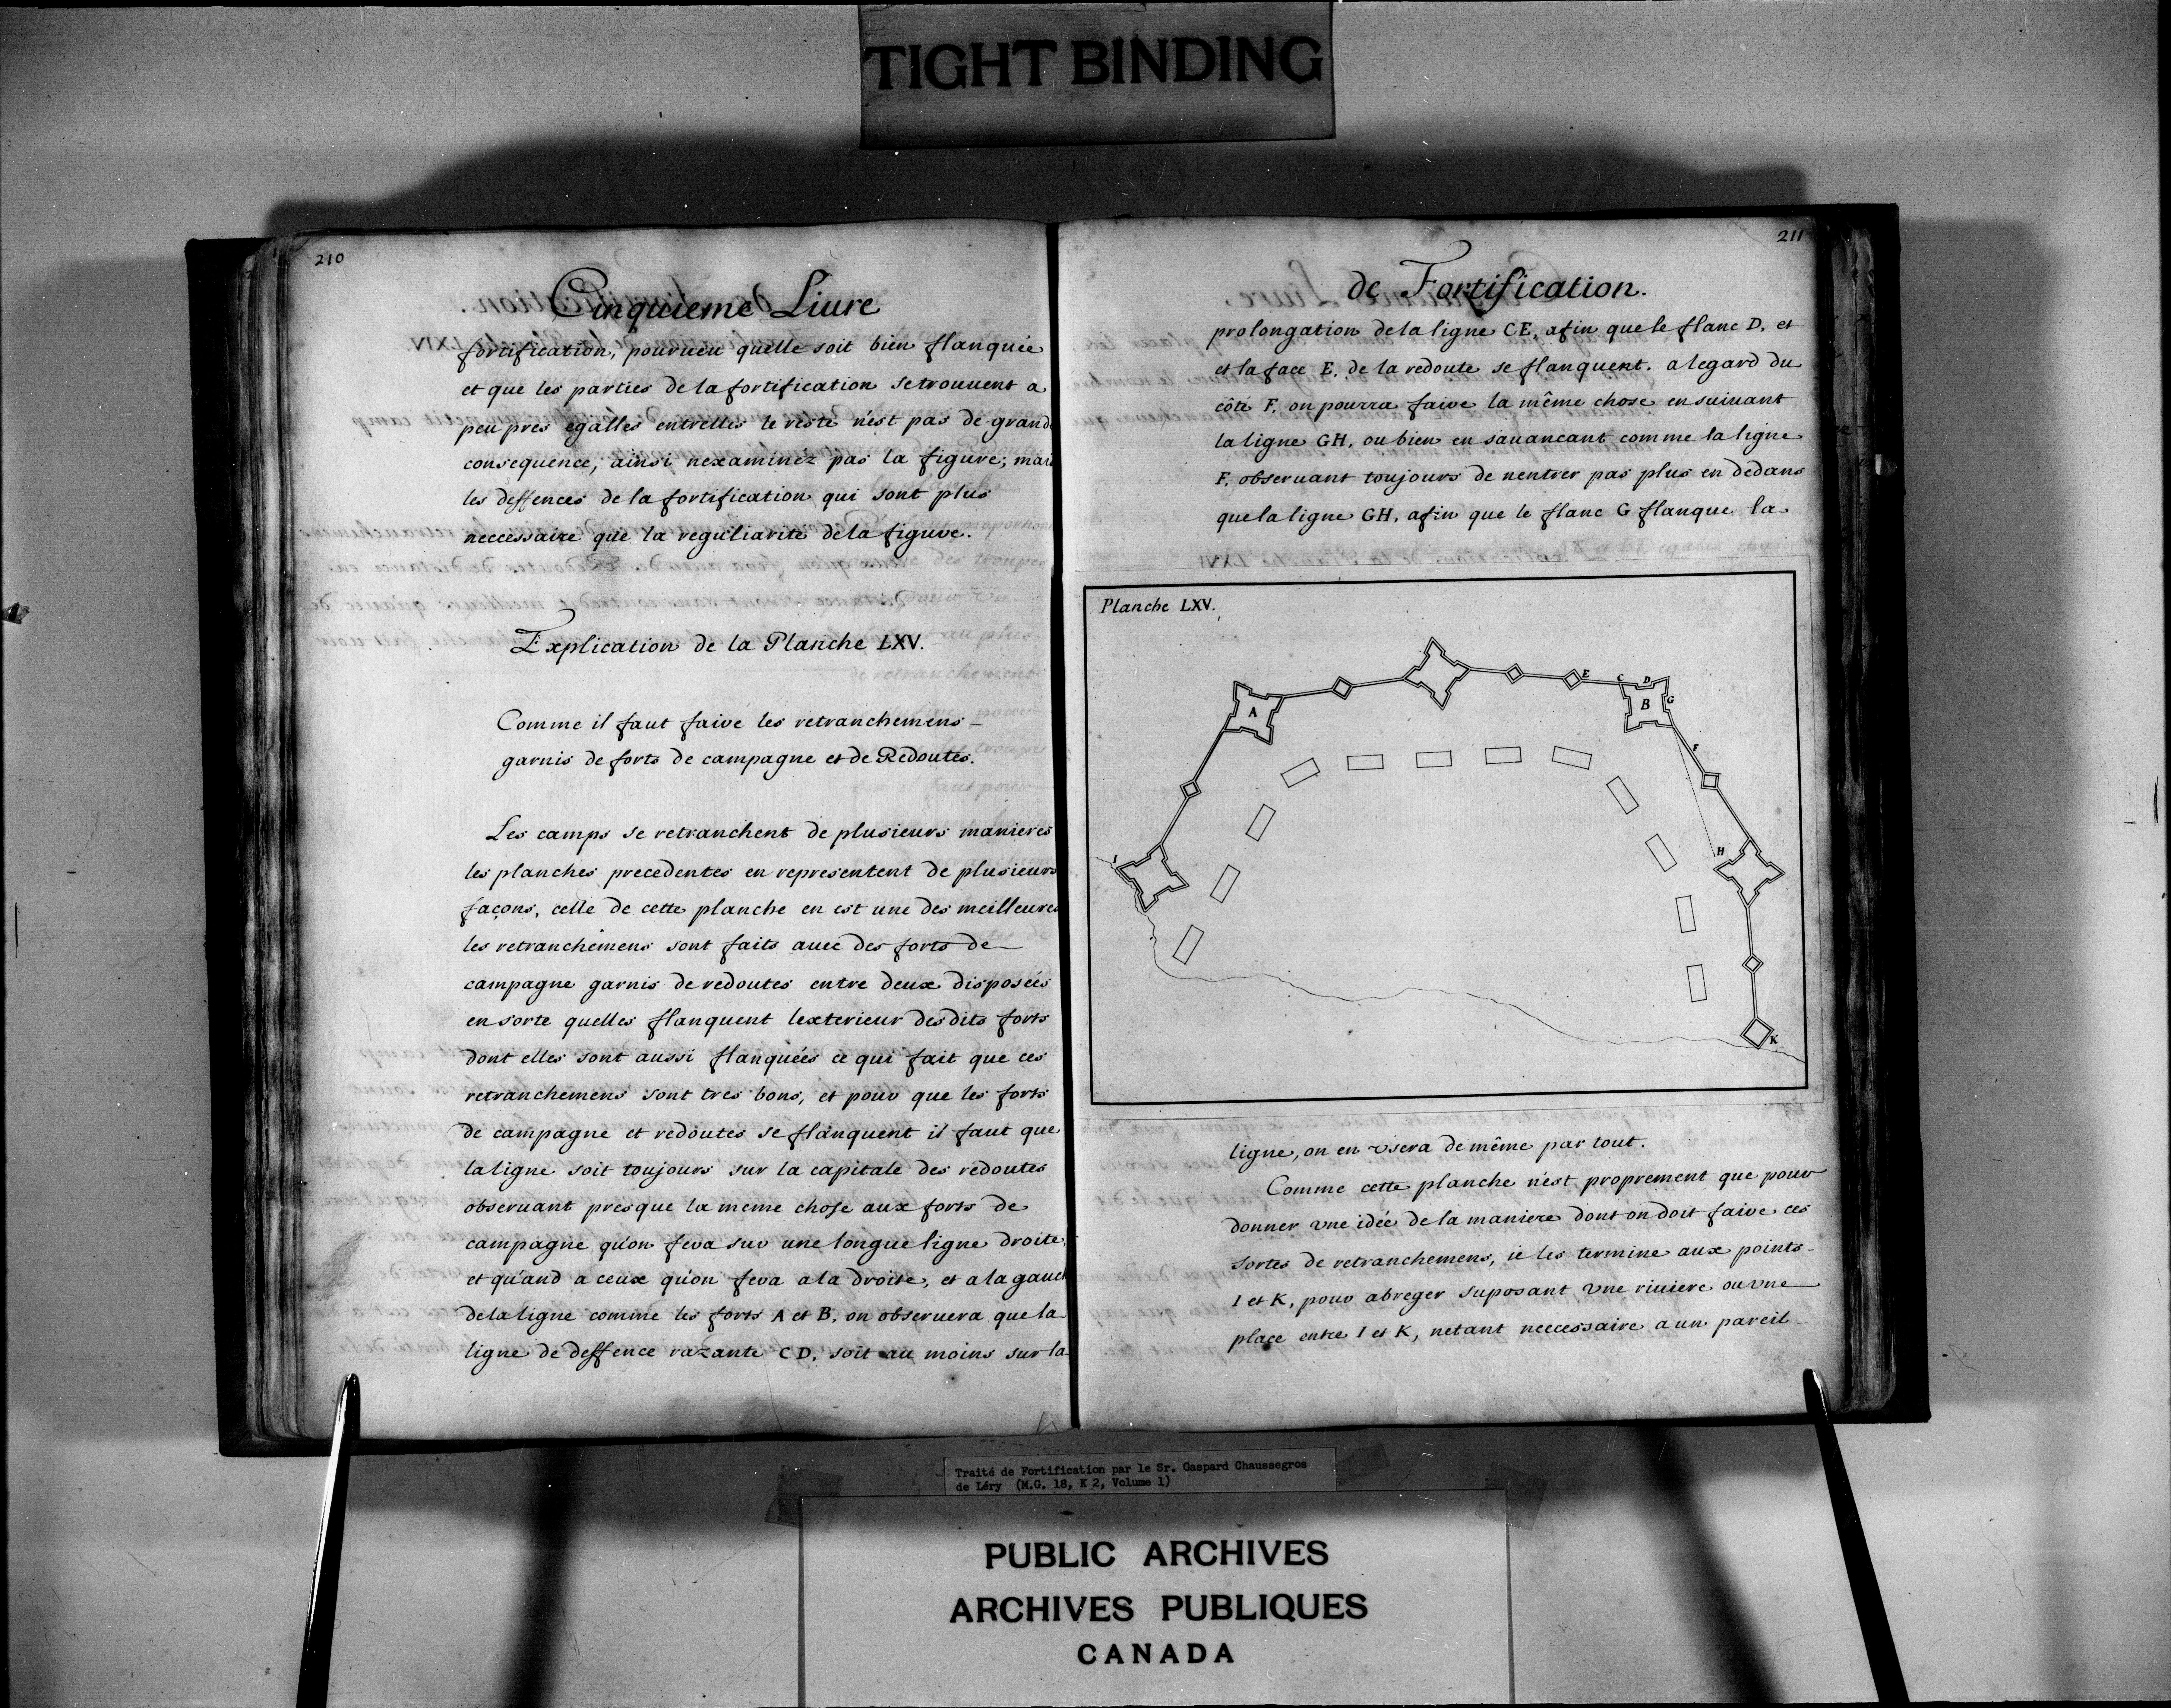 TIGHT BINDING
210
Cinquieme Liure
fortification, pourueu quelle soit bien flanquée
et que les parties de la fortification se trouuent a
peu pres egalles entrelles le reste n'est pas de grand
consequence, ainsi nexaminéz pas la figure; mais
les deffences de la fortification qui sont plus
neccessaire que la reguliarité de la figure.
Explication de la Planche LXV.
Comme il faut faire les retranchemens
garnis de forts de campagne et de Redoutes.
Les camps se retranchent de plusieurs manieres
les planches precedentes en representent de plusieurs
façons, celle de cette planche en est une des meilleures
les retranchemens sont faits auec des forts de
campagne garnis de redoutes entre deux disposées
en sorte quelles flanquent lexterieur desdits forts
dont elles sont aussi flanquées ce qui fait que ces
retranchemens sont tres bons, et pour que les forts
de campagne et redoutes se flanquent il faut que
la ligne soit toujours sur la capitale des redoutes
obseruant presque la meme chose aux forts de
campagne qu'on fera sur une longue ligne droite,
et qu'and a ceux qu'on fera a la droite, et a la gauch
de la ligne comme les forts A et B. on obseruera que la
ligne de deffence razante CD, soit au moins sur la
211
de Fortification.
prolongation de la ligne CE, afin que le flanc D. et
et la face E. de la redoute se flanquent. a legard du
côté F. on pourra faire la même chose en suiuant
la ligne GH, ou bien en sauancant comme la ligne
F. obseruant toujours de nentrer pas plus en dedans
que la ligne GH, afin que le flanc G flanque la
Planche LXV.
E C D
A B G
F
I H
K
ligne, on en vsera de même par tout.
Comme cette planche n'est proprement que pour
donner vne idée de la maniere dont on doit faire ces
sortes de retranchemens, ie les termine aux points
I et K, pour abreger suposant vne riuiere ou vne
place entre I et K, netant neccessaire a un pareil
Traité de Fortification par le Sr. Gaspard Chaussegros
de Léry (M.G. 18, K 2, Volume 1)
PUBLIC ARCHIVES
ARCHIVES PUBLIQUES
CANADA